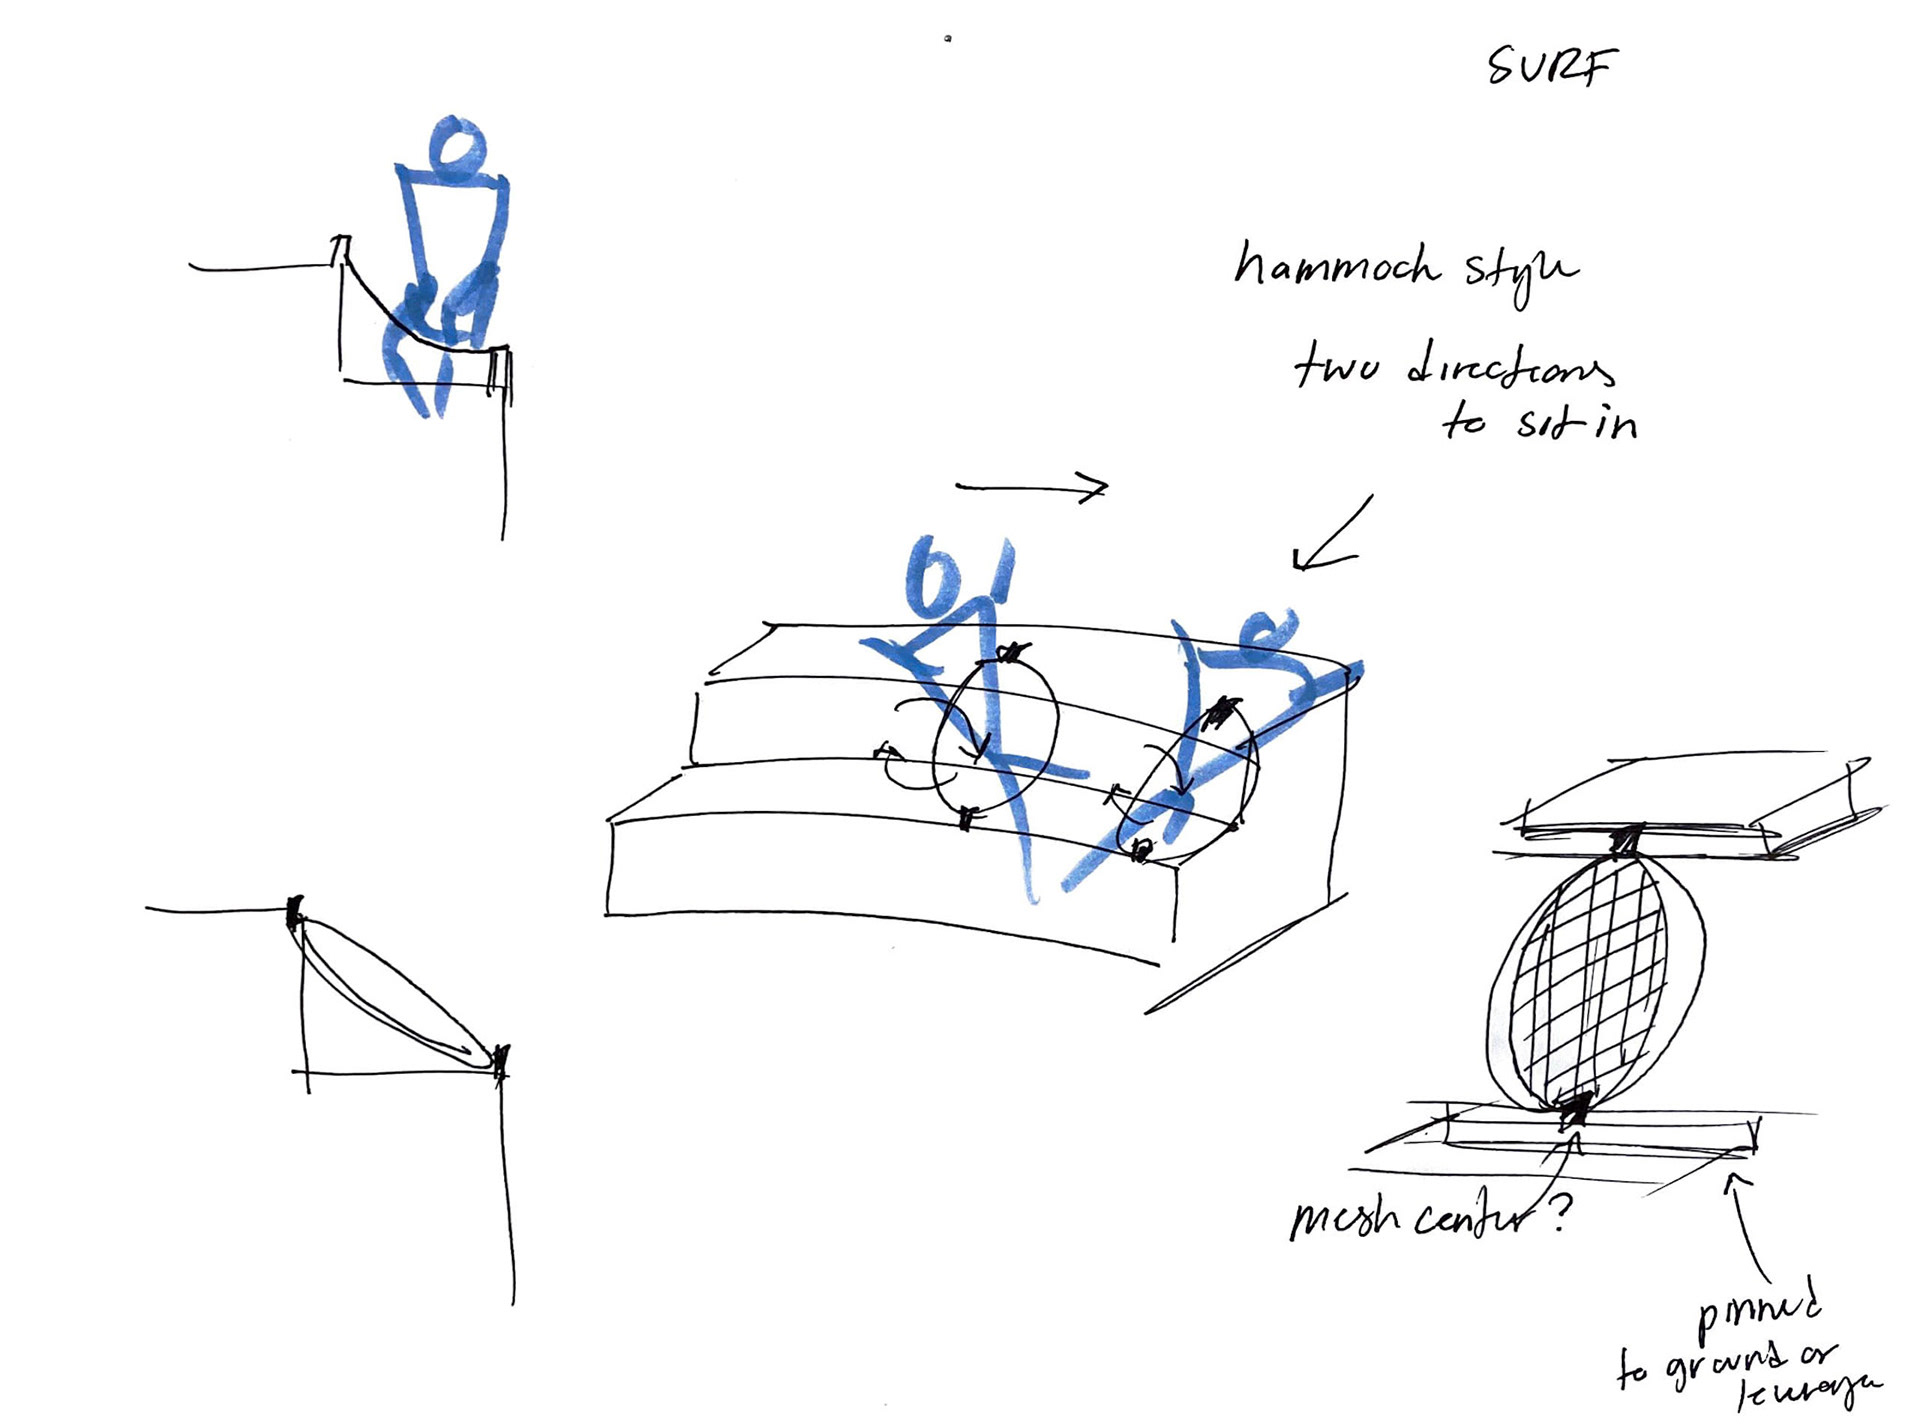 SURF
hammock style
two directions
to sit in
mesh center?
pinned
to ground or
leverage